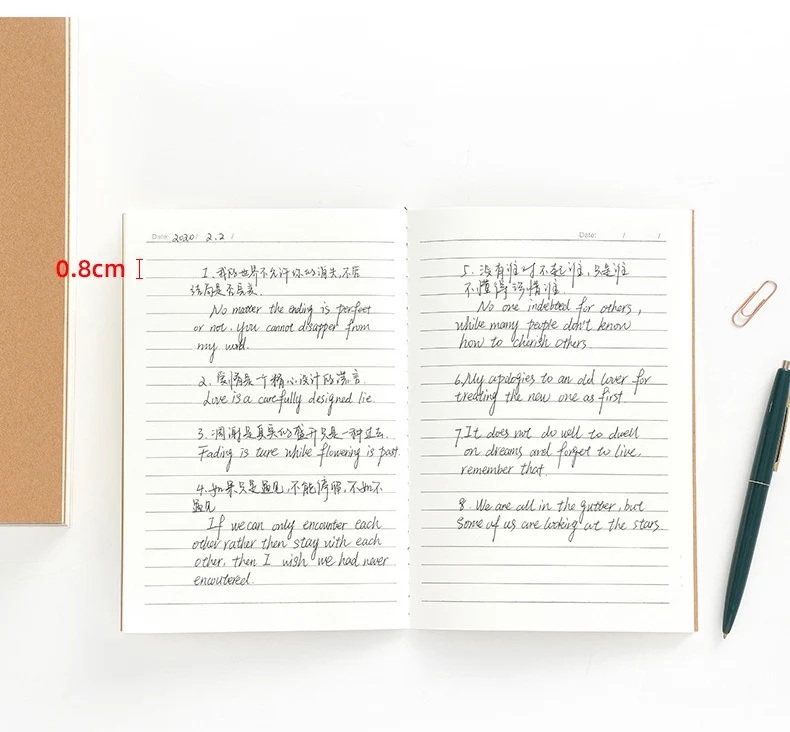 0.8cm
Date: 2020 / 2.2 /
1. 我的世界不允许你的消失,不管
结局是否完美.
No matter the ending is perfect
or not, you cannot disapper from
my world.
2. 爱情是一个精心设计的谎言.
Love is a carefully designed lie.
3. 凋谢是真实的盛开只是一种过去.
Fading is ture while flowering is past.
4. 如果只是遇见,不能停留,不如不
遇见
If we can only encounter each
other rather then stay with each
other, then I wish we had never
encoutered.
Date: / /
5. 没有谁对不起谁,只是谁
不懂得珍惜谁.
No one indebted for others,
while many people don't know
how to cherish others.
6. My apologies to an old lover for
treating the new one as first.
7. It does not do well to dwell
on dreams and forget to live,
remember that.
8. We are all in the gutter, but
some of us are looking at the stars.